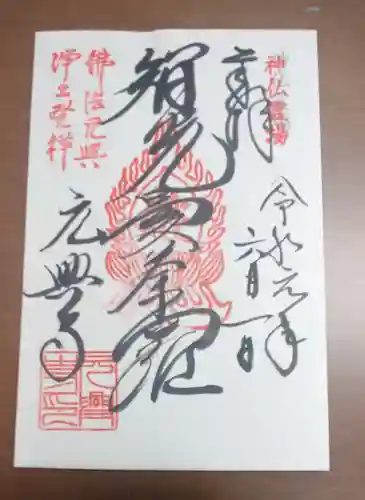 神仏霊場
奉拝
令和元年
六月一日
智光曼荼羅
佛法元興
浄土発祥
元興寺